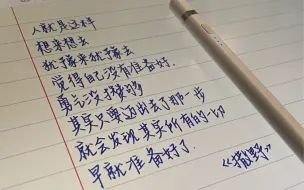 人就是这样
想来想去
犹豫来犹豫去
觉得自己没有准备好
勇气没攒够
其实只要迈出去了那一步
就会发现其实所有的一切
早就准备好了
《撒野》